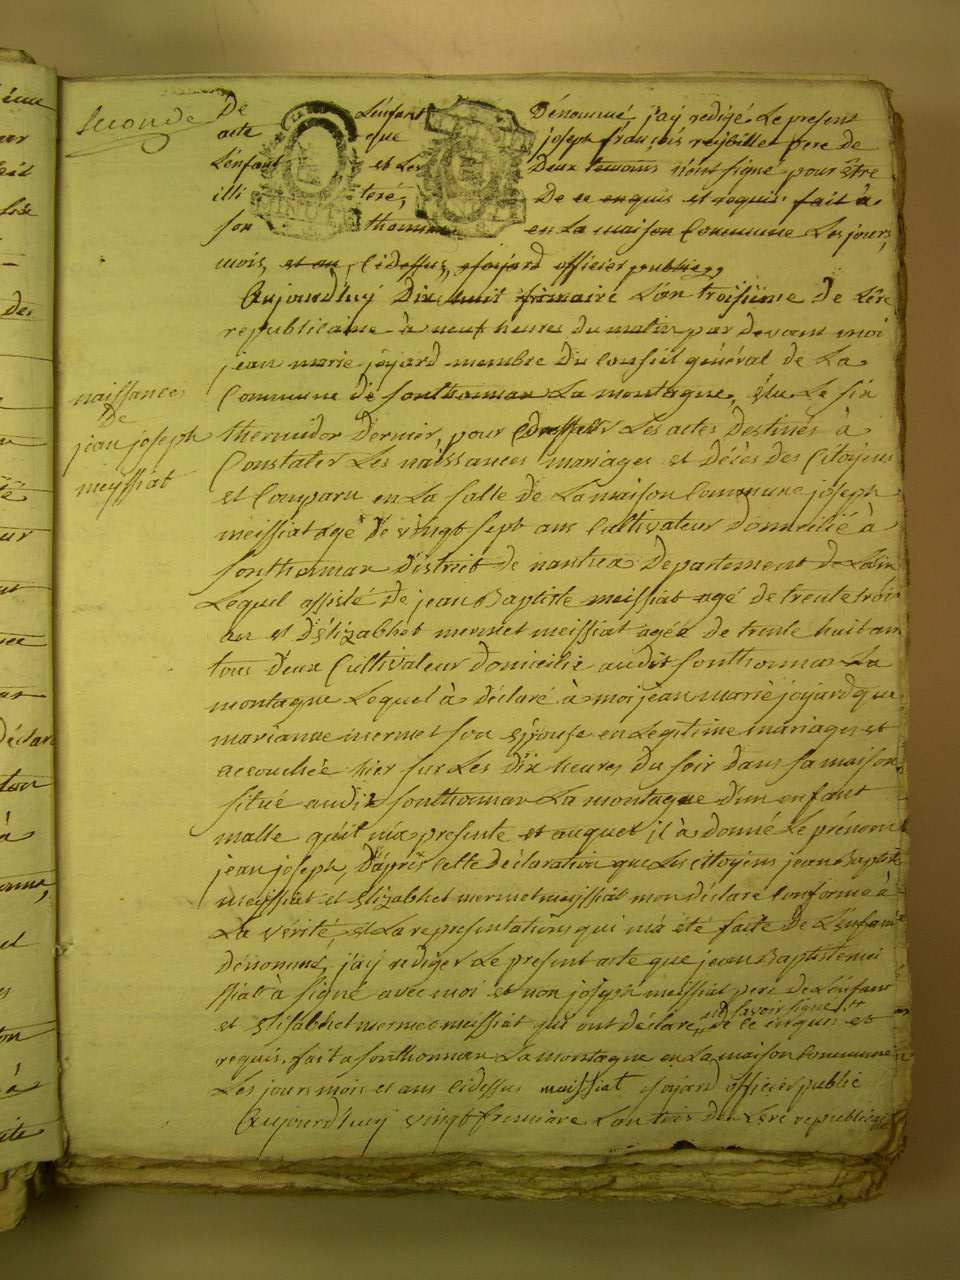 Seconde
De Lenfant Dénommé, j'ay redigé Le present
acte que joseph françois reybillet pere de
Lenfant et Les Deux temoins n'ont signé pour être
illi teré, De ce enquis et requis fait à
son thonnan en La maison Commune Les jours,
mois, et an, Cidessus, joyard officier publicq
Aujourd'huy Dix huit frimaire L'an troisiéme de L'ére
republicaine à neuf heures du matin par devant moi
jean marie joyard membre du Conseil général de La
Commune de sonthonnan La montagne, élu Le six
thermidor Dernier, pour Dresser Les actes Destinés à
Constater Les naissances mariages et décès des Citoyens
et Comparu en La salle de La maison Commune joseph
meissiat agé de vingt sept ans Cultivateur Domicilié à
sonthonnan District de nantua Département de Lain
Lequel assisté de jean Baptiste meissiat agé de trente trois
an et d'élizabhet mermet meissiat agée de trente huit an
tous deux Cultivateur domicilié audit sonthonnan La
montagne Lequel à déclaré à moi jean marie joyard que
marianne mermet son Epouse en Legitime mariages et
accouchée hier sur Les dix heures du soir dans sa maison
situé audit sonthonnan La montagne d'un enfant
malle qu'il m'a presente et auquel il à donné Le prénom
jean joseph, D'après Cette déclaration que Les citoyens jean Baptiste
meissiat et Elizabhet mermet meissiat mon déclare Conforme à
La vérité, et La representations qui m'a été faite de L'enfant
dénommé, j'ay rediger Le present acte que jean Baptiste mei
ssiat a signé avec moi et non joseph meissiat pere de L'enfant
et Elisabhet mermet meissiat qui ont déclaré savoir signé de ce enquis et
requis. fait a sonthonnan La montagne en La maison Commune
Les jours mois et ans Cidessus meissiat joyard officier public
Aujourd'huy vingt frimaire L'an trois de L'ére republicai
naissances
De
jean joseph
meyssiat